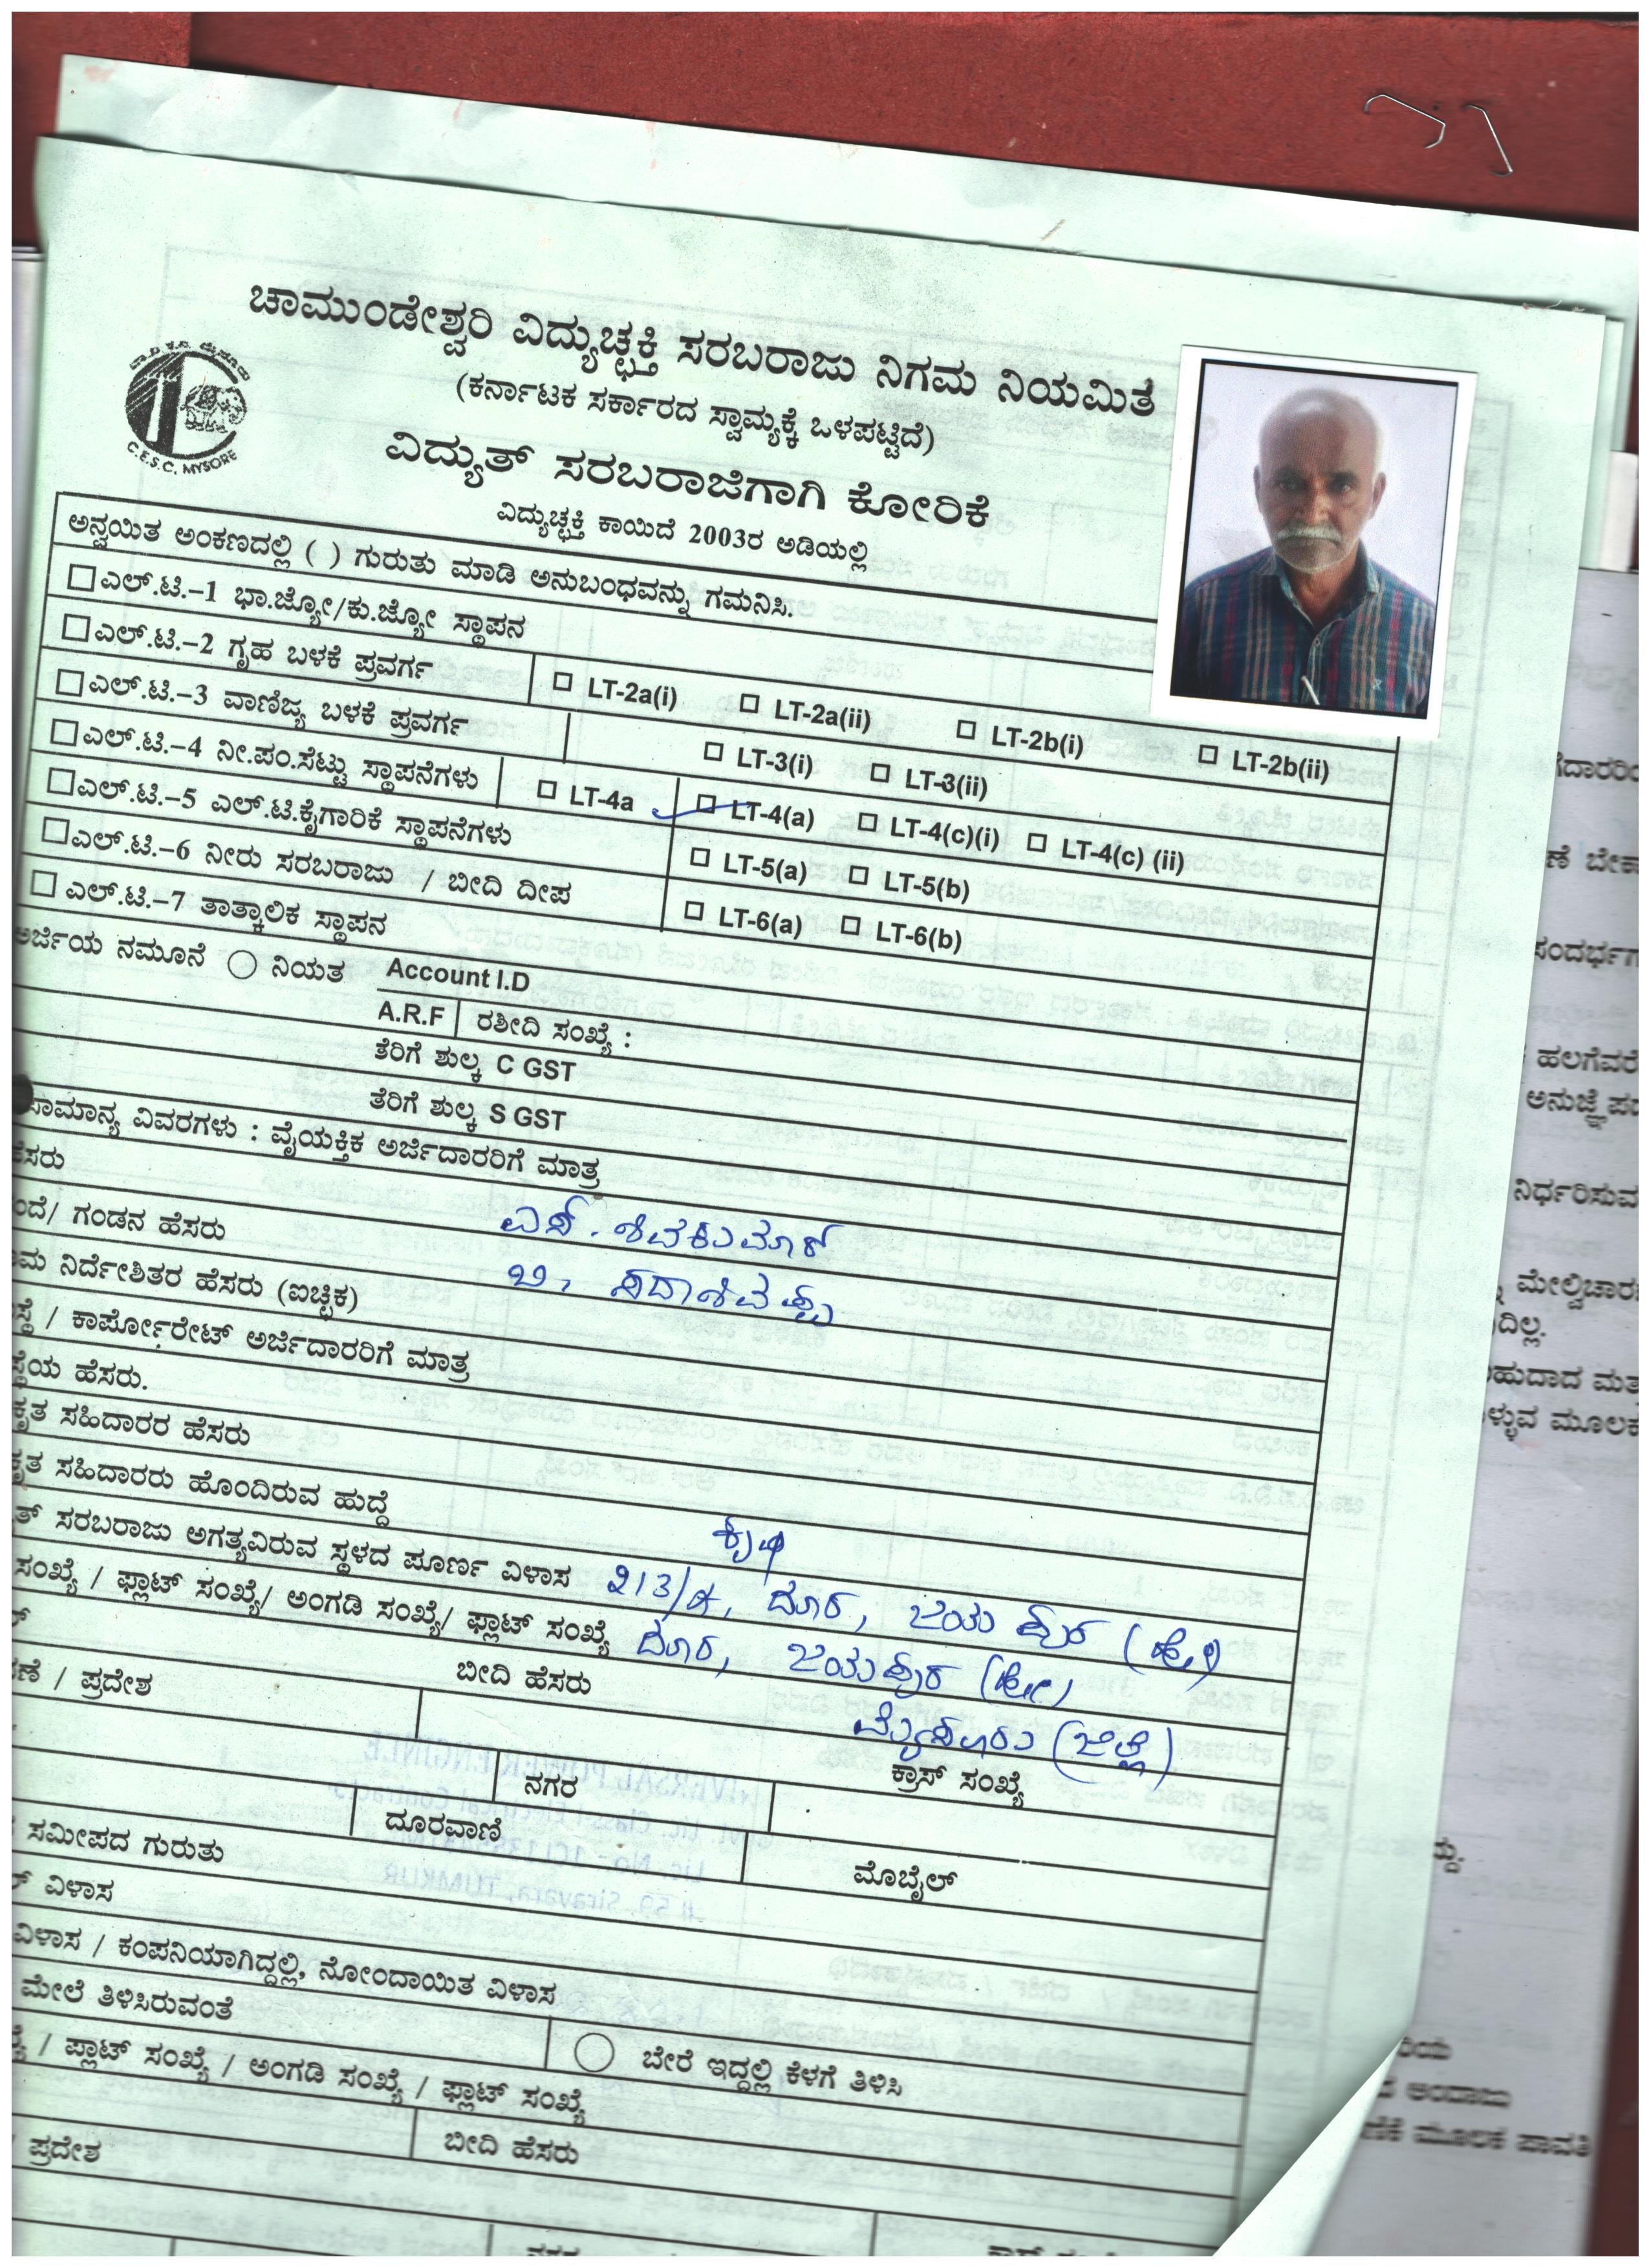 ಚಾಮುಂಡೇಶ್ವರಿ ವಿದ್ಯುಚ್ಛಕ್ತಿ ಸರಬರಾಜು ನಿಗಮ ನಿಯಮಿತೆ
(ಕರ್ನಾಟಕ ಸರ್ಕಾರದ ಸ್ವಾಮ್ಯಕ್ಕೆ ಒಳಪಟ್ಟಿದೆ)
C.E.S.C. MYSORE
ವಿದ್ಯುತ್ ಸರಬರಾಜಿಗಾಗಿ ಕೋರಿಕೆ
ವಿದ್ಯುಚ್ಛಕ್ತಿ ಕಾಯಿದೆ 2003ರ ಅಡಿಯಲ್ಲಿ
ಅನ್ವಯಿತ ಅಂಕಣದಲ್ಲಿ ( ) ಗುರುತು ಮಾಡಿ ಅನುಬಂಧವನ್ನು ಗಮನಿಸಿ.
ಎಲ್.ಟಿ.-1 ಭಾ.ಜ್ಯೋ/ಕು.ಜ್ಯೋ ಸ್ಥಾಪನ
ಎಲ್.ಟಿ.-2 ಗೃಹ ಬಳಕೆ ಪ್ರವರ್ಗ LT-2a(i) LT-2a(ii) LT-2b(i) LT-2b(ii)
ಎಲ್.ಟಿ.-3 ವಾಣಿಜ್ಯ ಬಳಕೆ ಪ್ರವರ್ಗ LT-3(i) LT-3(ii)
ಎಲ್.ಟಿ.-4 ನೀ.ಪಂ.ಸೆಟ್ಟು ಸ್ಥಾಪನೆಗಳು LT-4a LT-4(a) LT-4(c)(i) LT-4(c) (ii)
ಎಲ್.ಟಿ.-5 ಎಲ್.ಟಿ.ಕೈಗಾರಿಕೆ ಸ್ಥಾಪನೆಗಳು LT-5(a) LT-5(b)
ಎಲ್.ಟಿ.-6 ನೀರು ಸರಬರಾಜು / ಬೀದಿ ದೀಪ LT-6(a) LT-6(b)
ಎಲ್.ಟಿ.-7 ತಾತ್ಕಾಲಿಕ ಸ್ಥಾಪನ
ಅರ್ಜಿಯ ನಮೂನೆ ನಿಯತ Account I.D
A.R.F ರಶೀದಿ ಸಂಖ್ಯೆ :
ತೆರಿಗೆ ಶುಲ್ಕ C GST
ತೆರಿಗೆ ಶುಲ್ಕ S GST
ಸಾಮಾನ್ಯ ವಿವರಗಳು : ವೈಯಕ್ತಿಕ ಅರ್ಜಿದಾರರಿಗೆ ಮಾತ್ರ
ಹೆಸರು ಎಸ್. ಶಿವಕುಮಾರ್
ಗಂಡನ ಹೆಸರು ಬಿ. ಸದಾಶಿವಪ್ಪ
ನಿರ್ದೇಶಿತರ ಹೆಸರು (ಐಚ್ಛಿಕ)
/ ಕಾರ್ಪೋರೇಟ್ ಅರ್ಜಿದಾರರಿಗೆ ಮಾತ್ರ
ಹೆಸರು.
ಸಹಿದಾರರ ಹೆಸರು
ಸಹಿದಾರರು ಹೊಂದಿರುವ ಹುದ್ದೆ ಕೃಷಿ
ಸರಬರಾಜು ಅಗತ್ಯವಿರುವ ಸ್ಥಳದ ಪೂರ್ಣ ವಿಳಾಸ ದೂರ, ಜಯಪುರ (ಹೋ)
ಸಂಖ್ಯೆ / ಫ್ಲಾಟ್ ಸಂಖ್ಯೆ/ ಅಂಗಡಿ ಸಂಖ್ಯೆ/ ಫ್ಲಾಟ್ ಸಂಖ್ಯೆ ದೂರ, ಜಯಪುರ (ಹೋ)
ಬೀದಿ ಹೆಸರು ಮೈಸೂರು (ಜಿಲ್ಲೆ)
/ ಪ್ರದೇಶ ಕ್ರಾಸ್ ಸಂಖ್ಯೆ
ನಗರ
ದೂರವಾಣಿ ಮೊಬೈಲ್
ಸಮೀಪದ ಗುರುತು
ವಿಳಾಸ
ವಿಳಾಸ / ಕಂಪನಿಯಾಗಿದ್ದಲ್ಲಿ, ನೋಂದಾಯಿತ ವಿಳಾಸ
ಮೇಲೆ ತಿಳಿಸಿರುವಂತೆ ಬೇರೆ ಇದ್ದಲ್ಲಿ ಕೆಳಗೆ ತಿಳಿಸಿ
/ ಪ್ಲಾಟ್ ಸಂಖ್ಯೆ / ಅಂಗಡಿ ಸಂಖ್ಯೆ / ಫ್ಲಾಟ್ ಸಂಖ್ಯೆ
ಬೀದಿ ಹೆಸರು
ಪ್ರದೇಶ